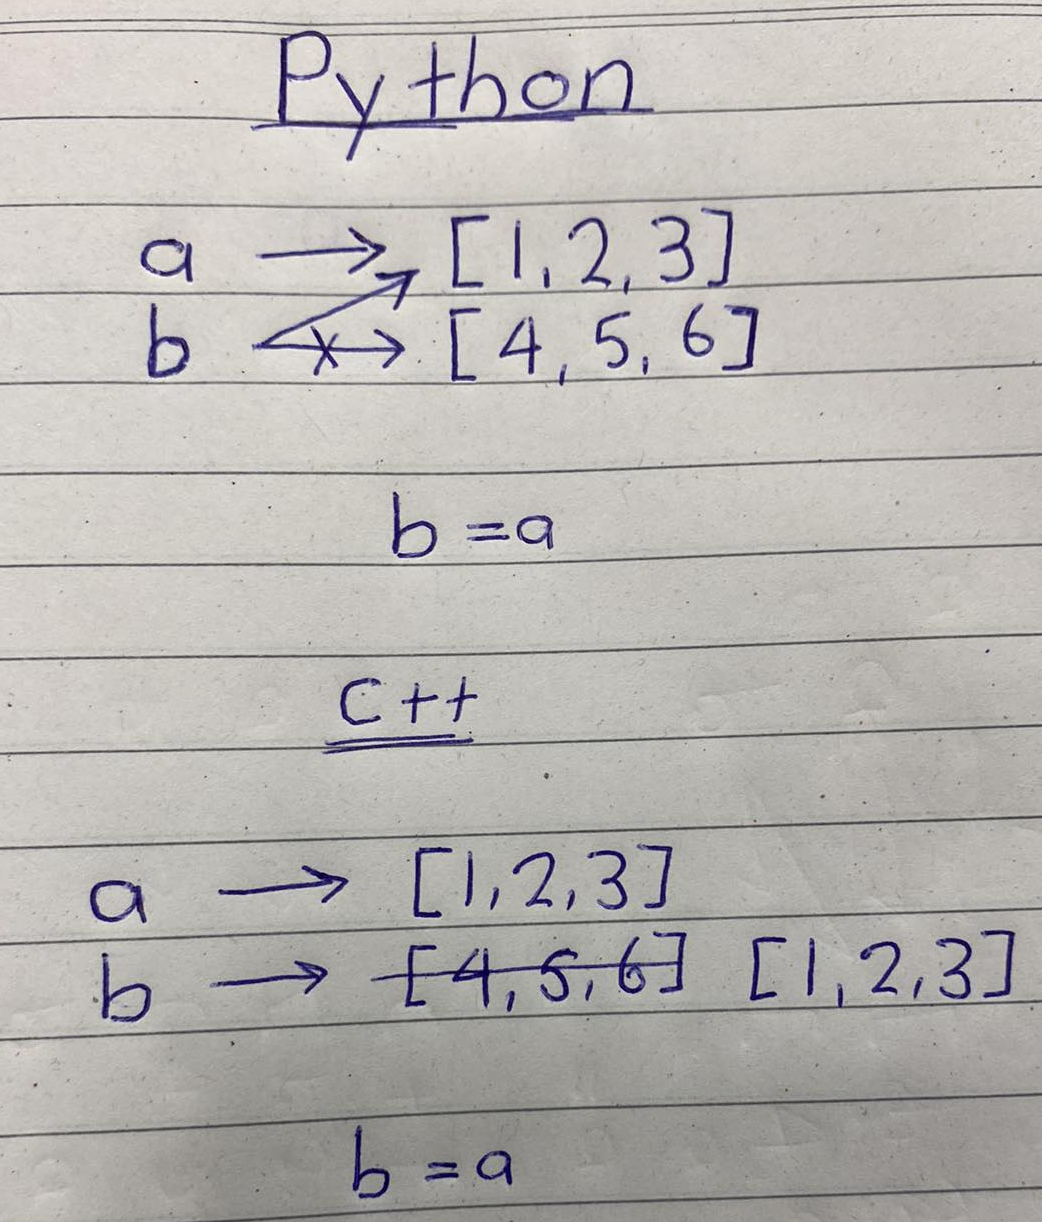 Python
a → [1, 2, 3]
b → [4, 5, 6]
b = a
C++
a → [1, 2, 3]
b → [4, 5, 6] [1, 2, 3]
b = a